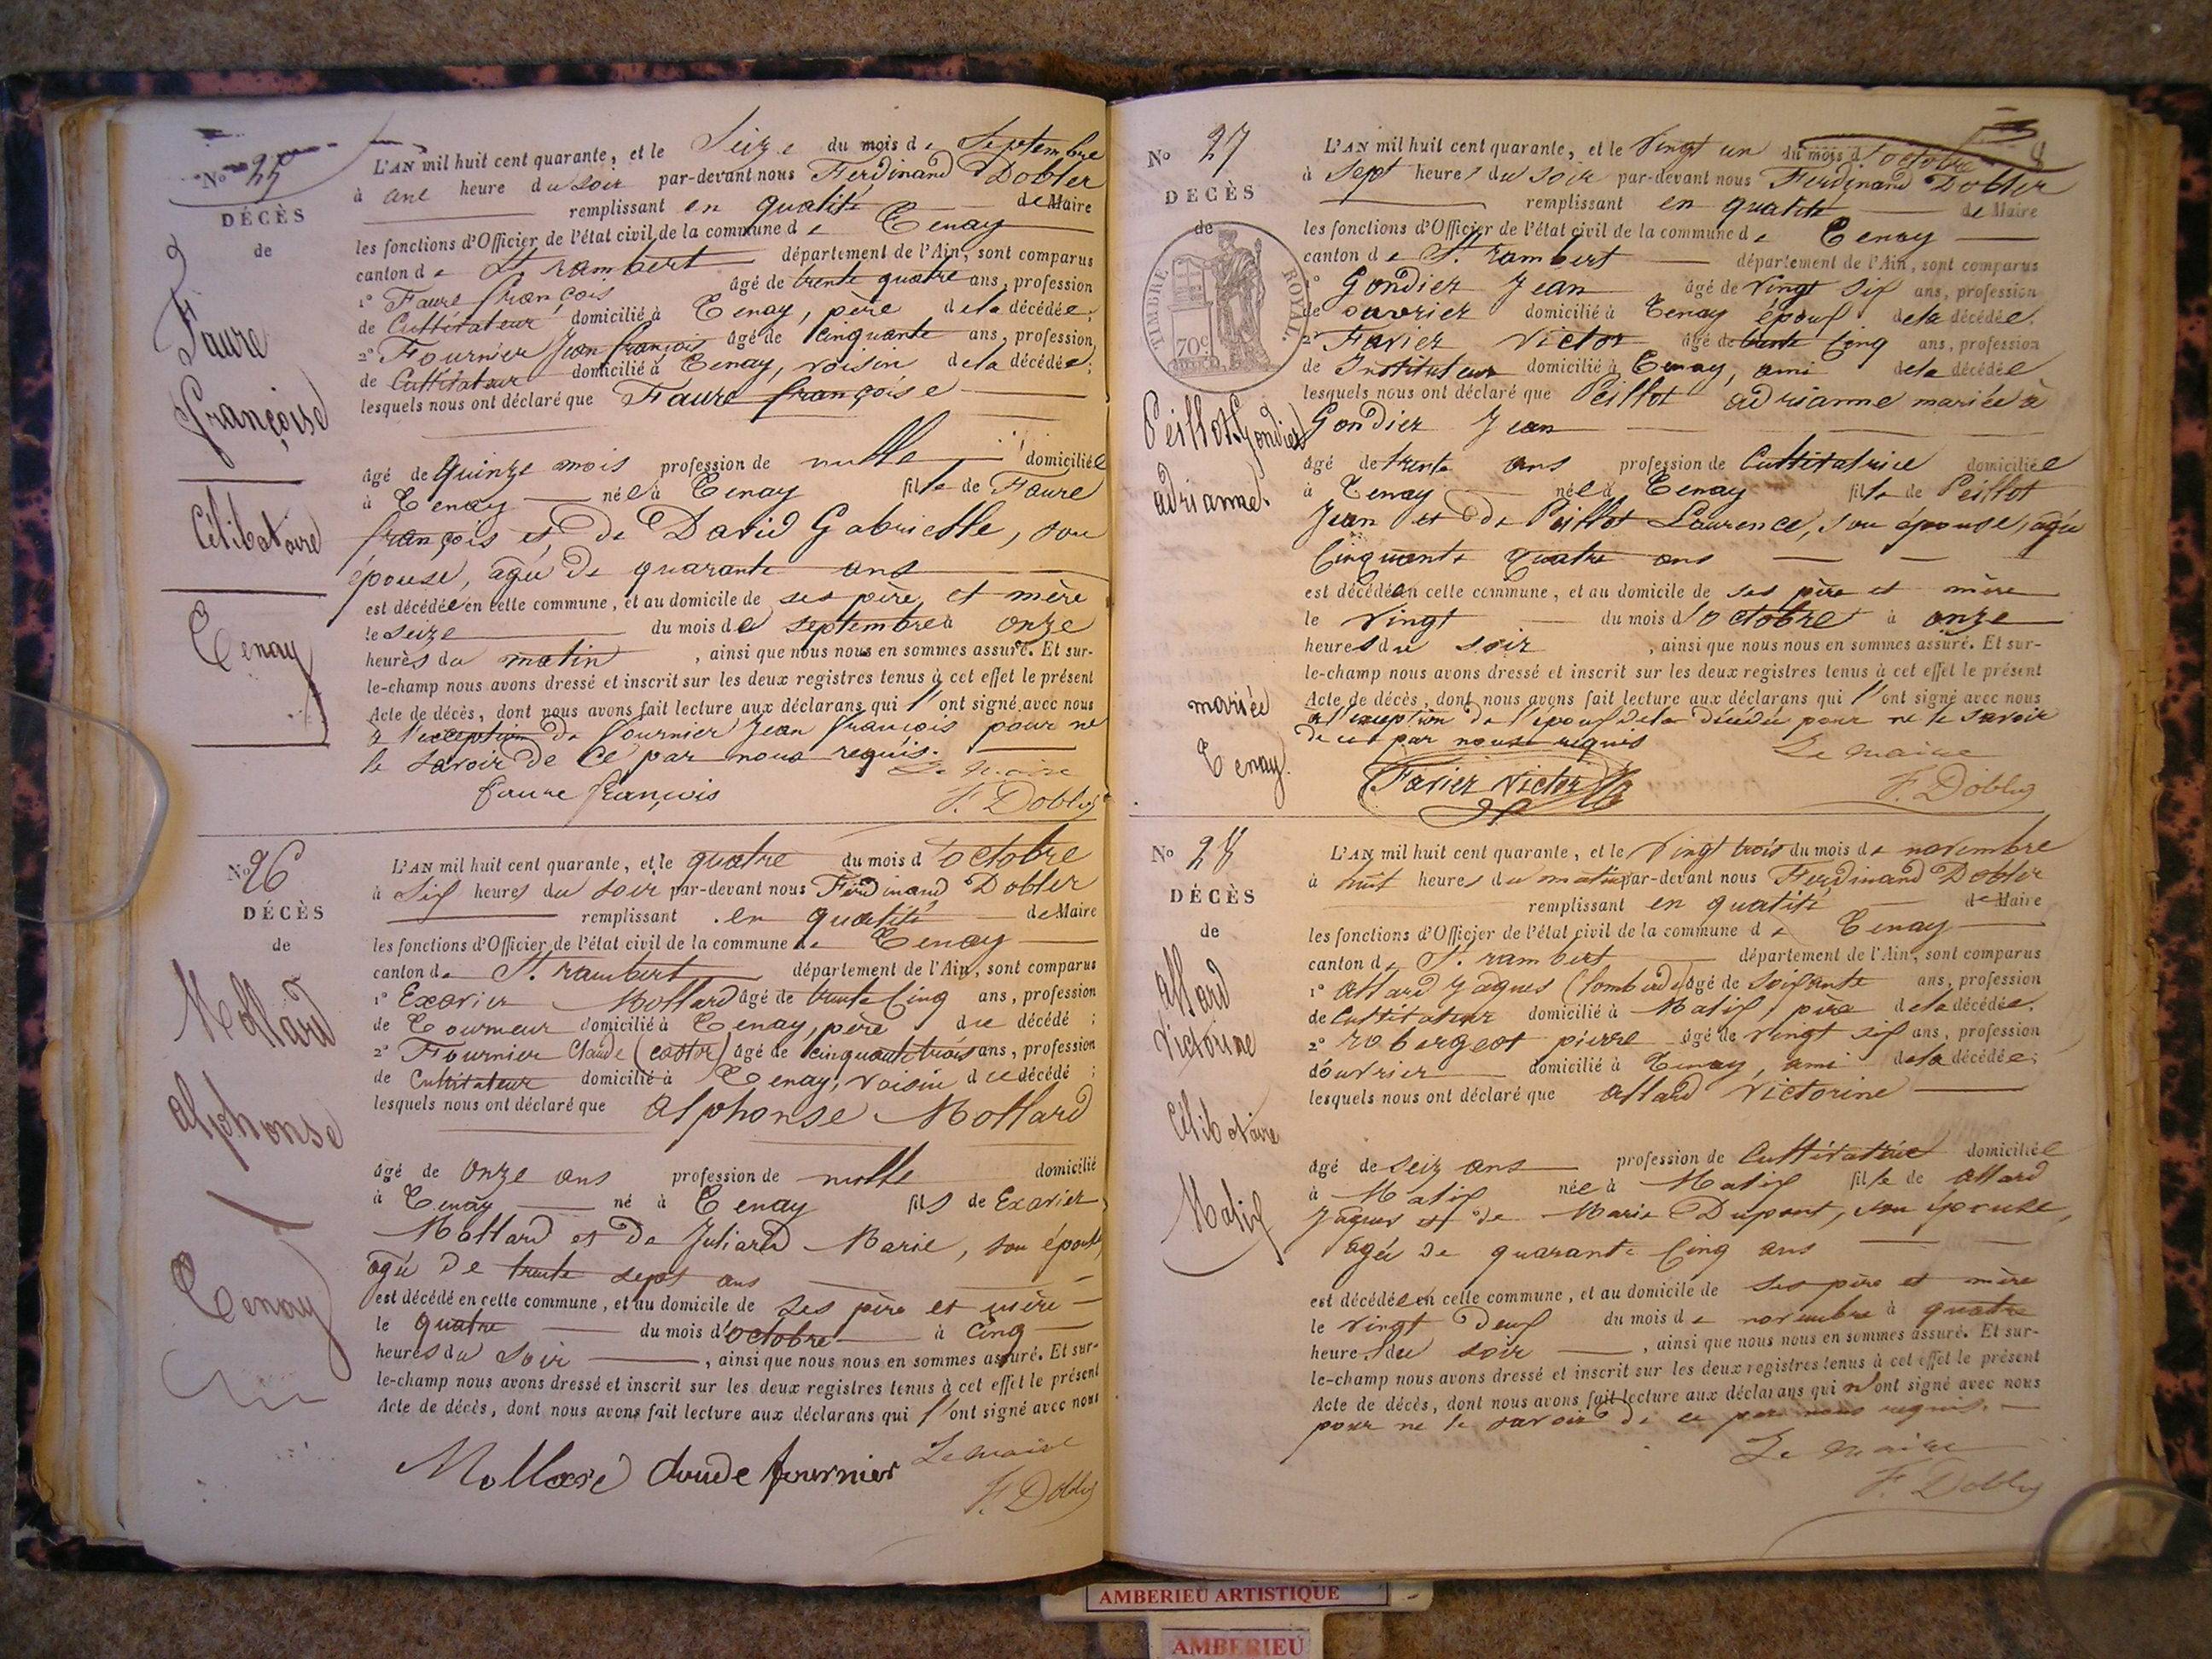 No 25
DÉCÈS
de
Faure
Françoise
Célibataire
Tenay
L'AN mil huit cent quarante, et le Seize du mois de Septembre
à une heure du soir par-devant nous Ferdinand Dobler
remplissant en qualité de Maire
les fonctions d'Officier de l'état civil de la commune de Tenay
canton de St. rambert département de l'Ain, sont comparus
1° Faure françois âgé de trente quatre ans, profession
de Cultivateur domicilié à Tenay, père de la décédée;
2° Fournier Jean françois âgé de cinquante ans, profession
de Cultivateur domicilié à Tenay, voisin de la décédée;
lesquels nous ont déclaré que Faure françoise
âgé de quinze mois profession de nulle domiciliée
à Tenay née à Tenay fille de Faure
françois et de David Gabrielle, son
épouse, agée de quarante ans
est décédée en cette commune, et au domicile de ses père et mère
le seize du mois de septembre à onze
heures du matin, ainsi que nous nous en sommes assuré. Et sur-
le-champ nous avons dressé et inscrit sur les deux registres tenus à cet effet le présent
Acte de décès, dont nous avons fait lecture aux déclarans qui l'ont signé avec nous
à l'exception de fournier Jean francois pour ne
le savoir de ce par nous requis.
Le maire
faure françois
F. Dobler
No 26
DÉCÈS
de
Mollard
alphonse
Tenay
L'AN mil huit cent quarante, et le quatre du mois d'octobre
à Six heures du soir par-devant nous Ferdinand Dobler
remplissant en qualité de Maire
les fonctions d'Officier de l'état civil de la commune de Tenay
canton de St. rambert département de l'Ain, sont comparus
1° Exavier Mollard âgé de trente Cinq ans, profession
de Tourneur domicilié à Tenay, père du décédé;
2° Fournier Claude (castor) âgé de cinquante trois ans, profession
de Cultivateur domicilié à Tenay, voisin du décédé;
lesquels nous ont déclaré que Alphonse Mollard
âgé de onze ans profession de nulle domicilié
à Tenay né à Tenay fils de Exavier
Mollard et de Juliard Marie, son épouse
agée de trente sept ans
est décédé en cette commune, et au domicile de ses père et mère
le quatre du mois d'octobre à Cinq
heures du soir, ainsi que nous nous en sommes assuré. Et sur-
le-champ nous avons dressé et inscrit sur les deux registres tenus à cet effet le présent
Acte de décès, dont nous avons fait lecture aux déclarans qui l'ont signé avec nous
Le maire
Mollard Claude fournier
F. Dobler
No 27
DÉCÈS
de
TIMBRE ROYAL
70c
Peillot Gondier
adrianne.
mariée
Tenay.
L'AN mil huit cent quarante, et le Vingt un du mois d'octobre
à sept heures du soir par-devant nous Ferdinand Dobler
remplissant en qualité de Maire
les fonctions d'Officier de l'état civil de la commune de Tenay
canton de St. rambert département de l'Ain, sont comparus
1° Gondier Jean âgé de Vingt Six ans, profession
de ouvrier domicilié à Tenay époux de la décédée.
2° Favier Victor âgé de trente Cinq ans, profession
de Instituteur domicilié à Tenay, ami de la décédée
lesquels nous ont déclaré que Peillot adrianne mariée à
Gondier Jean
âgé de trente ans profession de Cultivatrice domiciliée
à Tenay née à Tenay fille de Peillot
Jean et de Peillot Laurence, son épouse, agée
Cinquante quatre ans
est décédée en cette commune, et au domicile de ses père et mère
le Vingt du mois d'octobre à onze
heures du soir, ainsi que nous nous en sommes assuré. Et sur-
le-champ nous avons dressé et inscrit sur les deux registres tenus à cet effet le présent
Acte de décès, dont nous avons fait lecture aux déclarans qui l'ont signé avec nous
à l'exception de l'époux de la décédée pour ne le savoir
de ce par nous requis
Le maire
Favier Victor
F. Dobler
No 28
DÉCÈS
de
allard
Victorine
Célibataire
Malix
L'AN mil huit cent quarante, et le Vingt trois du mois de novembre
à huit heures du matin par-devant nous Ferdinand Dobler
remplissant en qualité de Maire
les fonctions d'Officier de l'état civil de la commune de Tenay
canton de St. rambert département de l'Ain, sont comparus
1° allard Jaques âgé de soixante ans, profession
de Cultivateur domicilié à Malix, père de la décédée.
2° robergeot pierre âgé de Vingt six ans, profession
d'ouvrier domicilié à Tenay, ami de la décédée;
lesquels nous ont déclaré que allard Victorine
âgé de seize ans profession de Cultivatrice domiciliée
à Malix née à Malix fille de allard
Jaques et de Marie Dupont, son épouse,
agée de quarante Cinq ans
est décédée en cette commune, et au domicile de ses père et mère
le Vingt Deux du mois de novembre à quatre
heures du soir, ainsi que nous nous en sommes assuré. Et sur-
le-champ nous avons dressé et inscrit sur les deux registres tenus à cet effet le présent
Acte de décès, dont nous avons fait lecture aux déclarans qui n'ont signé avec nous
pour ne le savoir de ce par nous requis.
Le maire
F. Dobler
AMBERIEU ARTISTIQUE
AMBERIEU